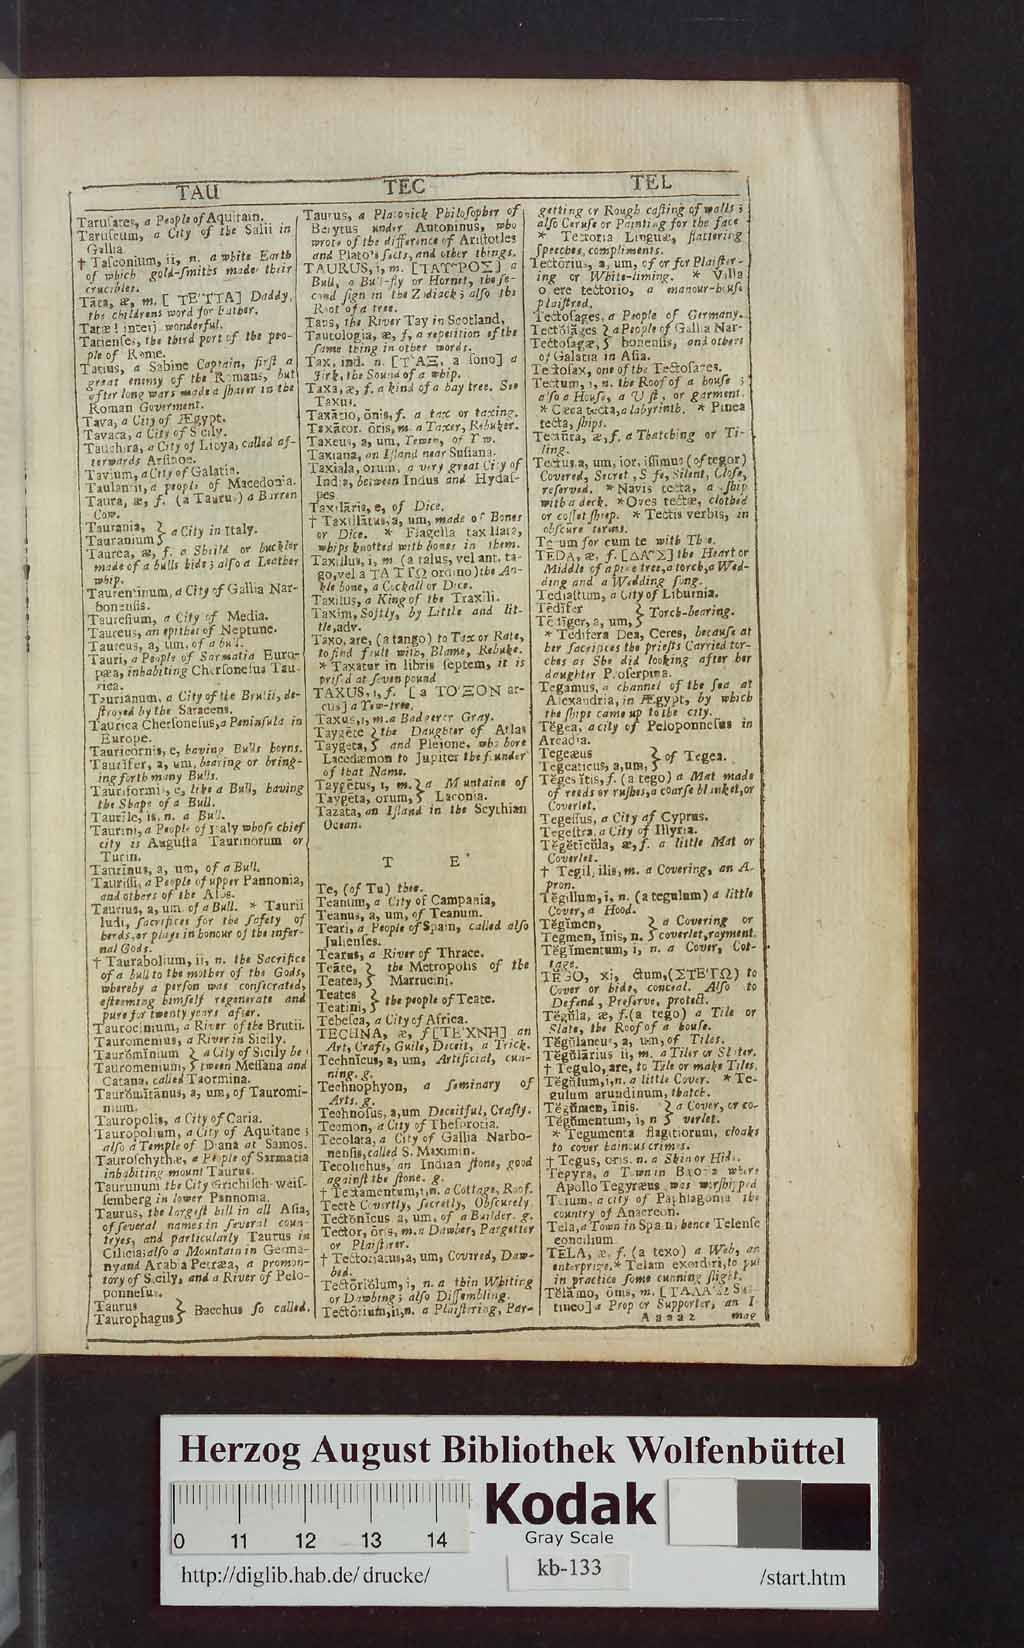 TAU
TEC
TEL
Tarusates, a People of Aquitain.
Taruscum, a City of the Salii in
Gallia.
† Tasconium, ii, n. a white Earth
of which gold-smiths made their
crucibles.
Tata, æ, m. [ΤΕΤΤΑ] Daddy,
the childrens word for Father.
Tatæ! interj. wonderful.
Tatienses, the third part of the peo-
ple of Rome.
Tatius, a Sabine Captain, first a
great enemy of the Romans, but
after long wars made a sharer in the
Roman Goverment.
Tava, a City of Ægypt.
Tavaca, a City of Sicily.
Tauchira, a City of Libya, called af-
terwards Arsinoe.
Tavium, a City of Galatia.
Taulantii, a people of Macedonia.
Taura, æ, f. (a Taurus) a Barren
Cow.
Taurania, } a City in Italy.
Tauranium
Taurea, æ, f. a Shild or buckler
made of a bulls hide; also a Leather
whip.
Taurentinum, a City of Gallia Nar-
bonensis.
Tauresium, a City of Media.
Taureus, an epithet of Neptune.
Taureus, a, um, of a bull.
Tauri, a People of Sarmatia Euro-
pæa, inhabiting Chersonesus Tau-
rica.
Taurianum, a City of the Brutii, de-
stroyed by the Saracens.
Taurica Chersonesus, a Peninsula in
Europe.
Tauricornis, e, having Bulls horns.
Taurifer, a, um, bearing or bring-
ing forth many Bulls.
Tauriformis, e, like a Bull, having
the Shape of a Bull.
Taurīle, is, n. a Bull.
Taurini, a People of Italy whose chief
city is Augusta Taurinorum or
Turin.
Taurīnus, a, um, of a Bull.
Taurisci, a People of upper Pannonia,
and others of the Alps.
Taurius, a, um, of a Bull. * Taurii
ludi, sacrifices for the safety of
herds, or plays in honour of the infer-
nal Gods.
† Taurabolium, ii, n. the Sacrifice
of a bull to the mother of the Gods,
whereby a person was consecrated,
esteeming himself regenerate and
pure for twenty years after.
Taurocinium, a River of the Brutii.
Tauromenius, a River in Sicily.
Taurŏmĭnium } a City of Sicily be-
Tauromenium, } tween Messana and
Catana, called Taormina.
Taurŏmĭtānus, a, um, of Tauromi-
nium.
Tauropolis, a City of Caria.
Tauropolium, a City of Aquitane;
also a Temple of Diana at Samos.
Tauroschythæ, a People of Sarmatia
inhabiting mount Taurus.
Taurunum the City Grichisch-weis-
semberg in lower Pannonia.
Taurus, the largest hill in all Asia,
of several names in several coun-
tryes, and particularly Taurus in
Cilicia; also a Mountain in Germa-
ny and Arabia Petræa, a promon-
tory of Sicily, and a River of Pelo-
ponnesus.
Taurus } Bacchus so called.
Taurophagus
Taurus, a Platonick Philosopher of
Berytus under Antoninus, who
wrote of the difference of Aristotles
and Plato's sects, and other things.
TAURUS, i, m. [ΤΑΥΡΟΣ] a
Bull, a Bull-fly or Hornet, the se-
cond sign in the Zodiack; also the
Root of a tree.
Taus, the River Tay in Scotland,
Tautologia, æ, f, a repetition of the
same thing in other words.
Tax, ind. n. [ΤΑΞ, a sono] a
Jirk, the Sound of a whip.
Taxa, æ, f. a kind of a bay tree. See
Taxus.
Taxātio, ōnis, f. a tax or taxing.
Taxātor, ōris, m. a Taxer, Rebuker.
Taxeus, a, um, Yewen, of Yew.
Taxiana, an Island near Susiana.
Taxiala, orum, a very great City of
India, between Indus and Hydas-
pes
Taxillāria, e, of Dice.
† Taxillātus, a, um, made of Bones
or Dice. * Flagella taxillata,
whips knotted with bones in them.
Taxillus, i, m (a talus, vel ant. ta-
go, vel a ΤΑΤΤΩ ordino) the An-
kle bone, a Cockall or Dice.
Taxilus, a King of the Traxili.
Taxim, Softly, by Little and lit-
tle, adv.
Taxo, are, (a tango) to Tax or Rate,
to find fault with, Blame, Rebuke.
* Taxatur in libris septem, it is
pris'd at seven pound
TAXUS, i, f. [a ΤΟΞΟΝ ar-
cus] a Yew-tree.
Taxus, i, m. a Badger or Gray.
Taygete } the Daughter of Atlas
Taygeta, } and Pleione, who bore
Lacedæmon to Jupiter the founder
of that Name.
Taygĕtus, i, m. } a Muntaine of
Taygĕta, orum, } Laconia.
Tazata, an Island in the Scythian
Ocean.
T E
Te, (of Tu) thee.
Teanum, a City of Campania,
Teanus, a, um, of Teanum.
Teari, a People of Spain, called also
Julienses.
Tearus, a River of Thrace.
Teāte, } the Metropolis of the
Teatea, } Marrucini.
Teates } the people of Teate.
Teatini,
Tebesca, a City of Africa.
TECHNA, æ, f [ΤΕΧΝΗ] an
Art, Craft, Guile, Deceit, a Trick.
Technĭcus, a, um, Artificial, cun-
ning. g.
Technophyon, a seminary of
Arts. g.
Technosus, a, um Deceitful, Crafty.
Tecmon, a City of Thesprotia.
Tecolata, a City of Gallia Narbo-
nensis, called S. Maximin.
Tecolithus, an Indian stone, good
against the stone. g.
† Tectamentum, i, n. a Cottage, Roof.
Tectè Covertly, secretly, Obscurely.
Tectŏnĭcus a, um, of a Builder. g.
Tector, ōris, m. a Dawber, Pargetter
or Plaisterer.
† Tectoriatus, a, um, Covered, Daw-
bed.
Tectōriŏlum, i, n. a thin Whiting
or Dawbing; also Dissembling.
Tectōrium, ii, n. a Plaistering, Par-
getting or Rough casting of walls;
also Ceruse or Painting for the face
* Tectoria Linguæ, flattering
speeches, compliments.
Tectōrius, a, um, of or for Plaister-
ing or White-liming. * Villa
opere tectorio, a manour-house
plaistred.
Tectosages, a People of Germany.
Tectŏsăges } a People of Gallia Nar-
Tectosagæ, } bonensis, and others
of Galatia in Asia.
Tectosax, one of the Tectosages.
Tectum, i, n. the Roof of a house;
also a House, a Vest, or garment.
* Cæca tecta, a labyrinth. * Pinea
tecta, ships.
Tectūra, æ, f. a Thatching or Ti-
ling.
Tectus, a, um, ior, issimus (of tegor)
Covered, Secret, Safe, Silent, Close,
reserved. * Navis tecta, a ship
with a deck. * Oves tectæ, clothed
or cosset sheep. * Tectis verbis, in
obscure terms.
Tecum for cum te with Thee.
TEDA, æ, f. [ΔΑΣ] the Heart or
Middle of a pine tree, a torch, a Wed-
ding and a Wedding song.
Tediastum, a City of Liburnia.
Tēdĭfer } Torch-bearing.
Tēdĭger, a, um,
* Tedifera Dea, Ceres, because at
her sacrifices the priests Carried tor-
ches as She did looking after her
daughter Proserpina.
Tegamus, a channel of the sea at
Alexandria, in Ægypt, by which
the ships came up to the city.
Tĕgea, a city of Peloponnesus in
Arcadia.
Tegeæus } of Tegea.
Tegeaticus, a, um,
Tĕges ĭtis, f. (a tego) a Mat made
of reeds or rushes, a coarse blanket, or
Coverlet.
Tegessus, a City of Cyprus.
Tegestra, a City of Illyria.
Tĕgĕtĭcŭla, æ, f. a little Mat or
Coverlet.
† Tegil, ilis, m. a Covering, an A-
pron.
Tĕgillum, i, n. (a tegulum) a little
Cover, a Hood.
Tĕgĭmen, } a Covering or
Tegmen, ĭnis, n. } coverlet, rayment.
Tĕgĭmentum, i, n. a Cover, Cot-
tage.
TEGO, xi, ctum, (ΣΤΕΓΩ) to
Cover or hide, conceal. Also to
Defend, Preserve, protect.
Tĕgŭla, æ, f. (a tego) a Tile or
Slate, the Roof of a house.
Tĕgŭlaneus, a, um, of Tiles.
Tĕgŭlārius ii, m. a Tiler or Slater.
† Tegulo, are, to Tile or make Tiles.
Tĕgŭlum, i, n. a little Cover. * Te-
gulum arundinum, thatch.
Tĕgŭmen, ĭnis. } a Cover, or co-
Tĕgŭmentum, i, n } verlet.
* Tegumenta flagitiorum, cloaks
to cover hainous crimes.
† Tegus, oris. n. a Skin or Hide.
Tegyra, a Town in Bæotia where
Apollo Tegyræus was worshipped
Teium, a city of Paphlagonia the
country of Anacreon.
Tela, a Town in Spain, hence Telense
concilium
TELA, æ, f. (a texo) a Web, an
enterprize. * Telam exordiri, to put
in practice some cunning slight.
Tĕlămo, ōnis, m. [ΤΑΛΑΩ Sus-
tineo] a Prop or Supporter, an I-
Aaaa2 mag
Herzog August Bibliothek Wolfenbüttel
Kodak
Gray Scale
0 11 12 13 14
http://diglib.hab.de/drucke/
kb-133
/start.htm